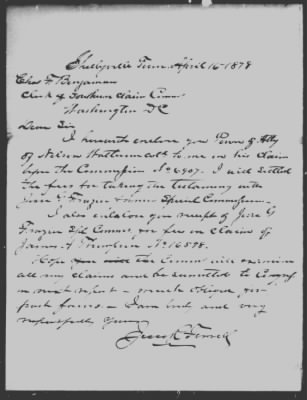 Shelbyville Tenn April 16 1879
Chas F Benjamin
Clerk of Southern Claim Comn
Washington DC
Dear Sir
I herewith enclose you Power of Atty
of Nelson to me in his claim
before the Commission No 6907. I will settle
the fees for taking the testimony with
Jesse G Frazier former Special Commissioner.
I also enclose you receipt of Jesse G
Frazier Spl Commr for fees on claims of
James A Thompson No 16578.
I hope Comm will examine
all my claims and be submitted to Congress
in next report - much oblige for
past favors - I am truly and very
respectfully yours